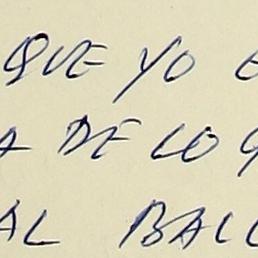 QUE YO
A DE LO
AL BAL